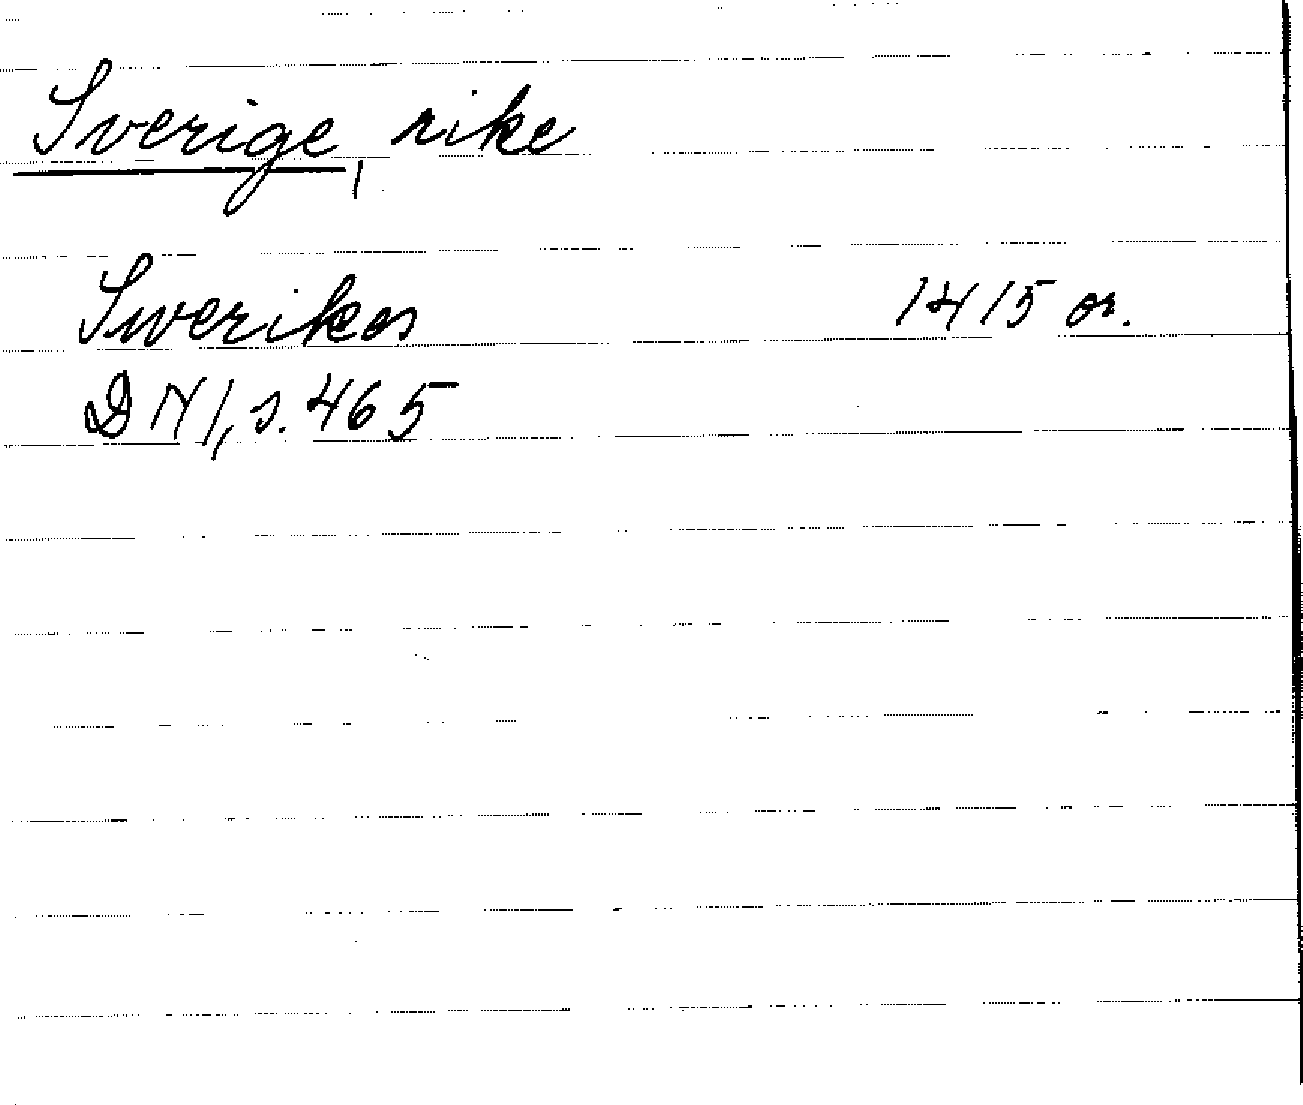 Sverige, rike
Swerikes 1415 or.
DN 1, s. 465